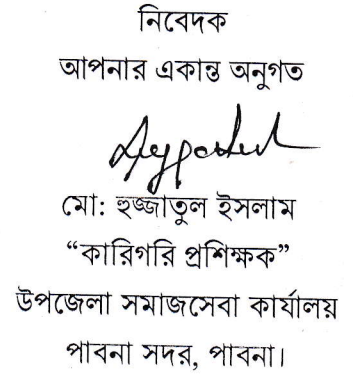 নিবেদক
আপনার একান্ত অনুগত
মো: হুজ্জাতুল ইসলাম
“কারিগরি প্রশিক্ষক”
উপজেলা সমাজসেবা কার্যালয়
পাবনা সদর, পাবনা।